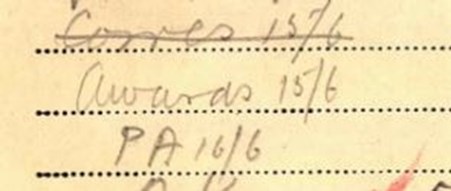 Corres 15/6
Awards 15/6
PA 16/6